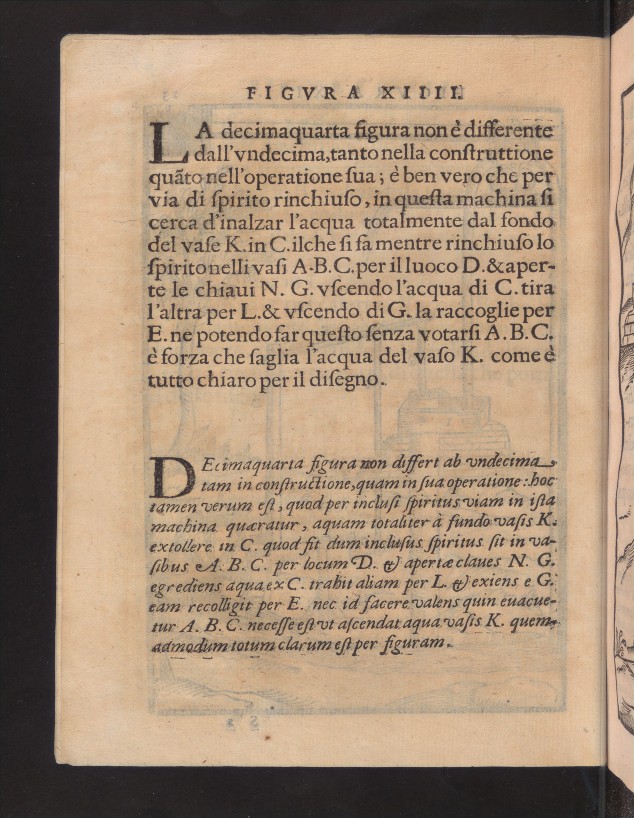 FIGVRA XIIII.
LA decimaquarta figura non è differente
dall'vndecima, tanto nella conſtruttione
quãto nell'operatione ſua; è ben vero che per
via di ſpirito rinchiuſo, in queſta machina ſi
cerca d'inalzar l'acqua totalmente dal fondo
del vaſe K. in C. ilche ſi fa mentre rinchiuſo lo
ſpirito nelli vaſi A.B.C. per il luoco D. & aper-
te le chiaui N. G. vſcendo l'acqua di C. tira
l'altra per L. & vſcendo di G. la raccoglie per
E. ne potendo far queſto ſenza votarſi A. B. C.
è forza che ſaglia l'acqua del vaſo K. come è
tutto chiaro per il diſegno.
DEcimaquarta figura non differt ab vndecima,
tam in conſtructione, quam in ſua operatione: hoc
tamen verum eſt, quod per incluſi ſpiritus viam in iſta
machina quæratur, aquam totaliter à fundo vaſis K.
extollere in C. quod fit dum incluſus ſpiritus ſit in va-
ſibus A. B. C. per locum D. & apertæ claues N. G.
egrediens aqua ex C. trahit aliam per L. & exiens e G.
eam recolligit per E. nec id facere valens quin euacue-
tur A. B. C. neceſſe eſt vt aſcendat aqua vaſis K. quem-
admodum totum clarum eſt per figuram.